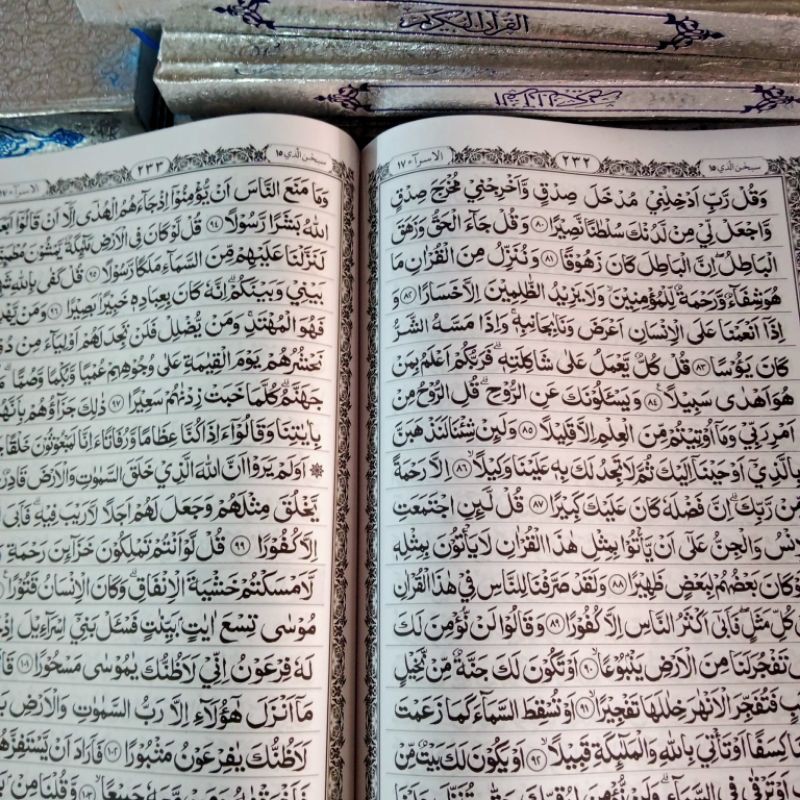 القرآن الكريم
سبحٰن الذي ١٥
٢٣٢
الاسرآء ١٧
وَقُلْ رَّبِّ اَدْخِلْنِيْ مُدْخَلَ صِدْقٍ وَّاَخْرِجْنِيْ مُخْرَجَ صِدْقٍ
وَّاجْعَلْ لِّيْ مِنْ لَّدُنْكَ سُلْطٰنًا نَّصِيْرًا ٨٠ وَقُلْ جَآءَ الْحَقُّ وَزَهَقَ
الْبَاطِلُ ۗاِنَّ الْبَاطِلَ كَانَ زَهُوْقًا ٨١ وَنُنَزِّلُ مِنَ الْقُرْاٰنِ مَا
هُوَ شِفَآءٌ وَّرَحْمَةٌ لِّلْمُؤْمِنِيْنَ ۙوَلَا يَزِيْدُ الظّٰلِمِيْنَ اِلَّا خَسَارًا ٨٢ وَ
اِذَآ اَنْعَمْنَا عَلَى الْاِنْسَانِ اَعْرَضَ وَنَاٰ بِجَانِبِهٖ ۚوَاِذَا مَسَّهُ الشَّرُّ
كَانَ يَـُٔوْسًا ٨٣ قُلْ كُلٌّ يَّعْمَلُ عَلٰى شَاكِلَتِهٖ ۗفَرَبُّكُمْ اَعْلَمُ بِمَنْ
هُوَ اَهْدٰى سَبِيْلًا ٨٤ وَيَسْـَٔلُوْنَكَ عَنِ الرُّوْحِ ۗقُلِ الرُّوْحُ مِنْ
اَمْرِ رَبِّيْ وَمَآ اُوْتِيْتُمْ مِّنَ الْعِلْمِ اِلَّا قَلِيْلًا ٨٥ وَلَىِٕنْ شِئْنَا لَنَذْهَبَنَّ
بِالَّذِيْٓ اَوْحَيْنَآ اِلَيْكَ ثُمَّ لَا تَجِدُ لَكَ بِهٖ عَلَيْنَا وَكِيْلًا ٨٦ اِلَّا رَحْمَةً
مِّنْ رَّبِّكَ ۗاِنَّ فَضْلَهٗ كَانَ عَلَيْكَ كَبِيْرًا ٨٧ قُلْ لَّىِٕنِ اجْتَمَعَتِ
وَالْجِنُّ عَلٰٓى اَنْ يَّأْتُوْا بِمِثْلِ هٰذَا الْقُرْاٰنِ لَا يَأْتُوْنَ بِمِثْلِهٖ
كَانَ بَعْضُهُمْ لِبَعْضٍ ظَهِيْرًا ٨٨ وَلَقَدْ صَرَّفْنَا لِلنَّاسِ فِيْ هٰذَا الْقُرْاٰنِ
كُلِّ مَثَلٍۖ فَاَبٰىٓ اَكْثَرُ النَّاسِ اِلَّا كُفُوْرًا ٨٩ وَقَالُوْا لَنْ نُّؤْمِنَ لَكَ
تَفْجُرَ لَنَا مِنَ الْاَرْضِ يَنْۢبُوْعًا ٩٠ اَوْ تَكُوْنَ لَكَ جَنَّةٌ مِّنْ نَّخِيْلٍ
فَتُفَجِّرَ الْاَنْهٰرَ خِلٰلَهَا تَفْجِيْرًا ٩١ اَوْ تُسْقِطَ السَّمَآءَ كَمَا زَعَمْتَ
كِسَفًا اَوْ تَأْتِيَ بِاللّٰهِ وَالْمَلٰۤىِٕكَةِ قَبِيْلًا ٩٢ اَوْ يَكُوْنَ لَكَ بَيْتٌ مِّنْ
اَوْ تَرْقٰى فِى السَّمَآءِ ۗوَلَنْ نُّؤْمِنَ لِرُقِيِّكَ حَتّٰى تُنَزِّلَ عَلَيْنَا
سبحٰن الذي ١٥
٢٣٣
الاسرآء
وَمَا مَنَعَ النَّاسَ اَنْ يُّؤْمِنُوْٓا اِذْ جَآءَهُمُ الْهُدٰٓى اِلَّآ اَنْ قَالُوْٓا
اللّٰهُ بَشَرًا رَّسُوْلًا ٩٤ قُلْ لَّوْ كَانَ فِى الْاَرْضِ مَلٰۤىِٕكَةٌ يَّمْشُوْنَ
لَنَزَّلْنَا عَلَيْهِمْ مِّنَ السَّمَآءِ مَلَكًا رَّسُوْلًا ٩٥ قُلْ كَفٰى بِاللّٰهِ
بَيْنِيْ وَبَيْنَكُمْ ۗاِنَّهٗ كَانَ بِعِبَادِهٖ خَبِيْرًا بَصِيْرًا ٩٦ وَمَنْ
فَهُوَ الْمُهْتَدِۚ وَمَنْ يُّضْلِلْ فَلَنْ تَجِدَ لَهُمْ اَوْلِيَآءَ مِنْ
نَحْشُرُهُمْ يَوْمَ الْقِيٰمَةِ عَلٰى وُجُوْهِهِمْ عُمْيًا وَّبُكْمًا وَّصُمًّا
جَهَنَّمُ ۗكُلَّمَا خَبَتْ زِدْنٰهُمْ سَعِيْرًا ٩٧ ذٰلِكَ جَزَآؤُهُمْ
بِاٰيٰتِنَا وَقَالُوْٓا ءَاِذَا كُنَّا عِظَامًا وَّرُفَاتًا ءَاِنَّا لَمَبْعُوْثُوْنَ خَلْقًا
۞ اَوَلَمْ يَرَوْا اَنَّ اللّٰهَ الَّذِيْ خَلَقَ السَّمٰوٰتِ وَالْاَرْضَ
يَّخْلُقَ مِثْلَهُمْ وَجَعَلَ لَهُمْ اَجَلًا لَّا رَيْبَ فِيْهِ ۗفَاَبَى
اِلَّا كُفُوْرًا ٩٩ قُلْ لَّوْ اَنْتُمْ تَمْلِكُوْنَ خَزَآىِٕنَ رَحْمَةِ
لَّاَمْسَكْتُمْ خَشْيَةَ الْاِنْفَاقِ ۗوَكَانَ الْاِنْسَانُ قَتُوْرًا
مُوْسٰى تِسْعَ اٰيٰتٍۢ بَيِّنٰتٍ فَسْـَٔلْ بَنِيْٓ اِسْرَاۤءِيْلَ
لَهٗ فِرْعَوْنُ اِنِّيْ لَاَظُنُّكَ يٰمُوْسٰى مَسْحُوْرًا ١٠١
مَآ اَنْزَلَ هٰٓؤُلَآءِ اِلَّا رَبُّ السَّمٰوٰتِ وَالْاَرْضِ
لَاَظُنُّكَ يٰفِرْعَوْنُ مَثْبُوْرًا ١٠٢ فَاَرَادَ اَنْ يَّسْتَفِزَّهُمْ
جَمِيْعًا ١٠٣ وَّقُلْنَا مِنْۢ